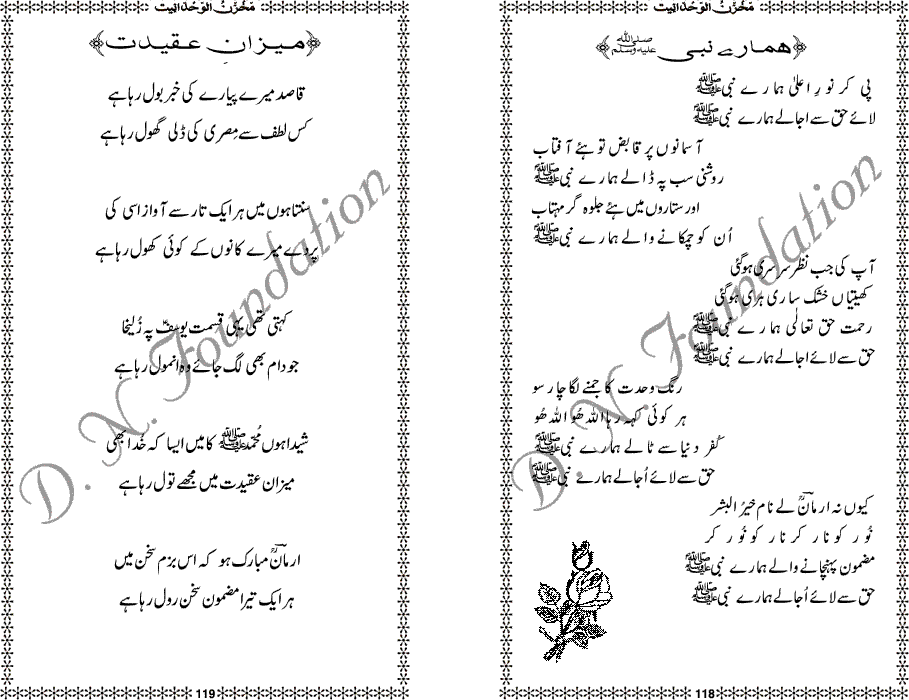 مخزن الوحدانیت
ھمارے نبی ﷺ
پی کر نورِ اعلیٰ ہمارے نبی ﷺ
لائے حق سے اجالے ہمارے نبی ﷺ
آسمانوں پر قابض تو ہئے آفتاب
روشنی سب پہ ڈالے ہمارے نبی ﷺ
اور ستاروں میں ہئے جلوہ گر مہتاب
اُن کو چمکانے والے ہمارے نبی ﷺ
آپ کی جب نظر سرسری ہوگئی
کھیتیاں خشک ساری ہری ہوگئی
رحمت حق تعالٰی ہمارے نبی ﷺ
حق سے لائے اجالے ہمارے نبی ﷺ
رنگ وحدت کا جمنے لگا چار سو
ہر کوئی کہہ رہا اللہ ھُو اللہ ھُو
کُفر دنیا سے ٹالے ہمارے نبی ﷺ
حق سے لائے اُجالے ہمارے نبی ﷺ
کیوں نہ ارمانؔ لے نام خیرُ البشر
نُور کو نار کر نار کو نُور کر
مضمون پہنچانے والے ہمارے نبی ﷺ
حق سے لائے اُجالے ہمارے نبی ﷺ
118
مخزن الوحدانیت
میزانِ عقیدت
قاصد میرے پیارے کی خبر بول رہا ہے
کس لطف سے مِصری کی ڈلی گھول رہا ہے
سنتا ہوں میں ہر ایک تار سے آواز اسی کی
پردے میرے کانوں کے کوئی کھول رہا ہے
کہتی تھی یہی قسمت یوسفؑ پہ زُلیخا
جو دام بھی لگ جائے وہ انمول رہا ہے
شیدا ہوں مُحمّد ﷺ کا میں ایسا کہ خُدا بھی
میزان عقیدت میں مجھے تول رہا ہے
ارمانؔ مبارک ہو کہ اس بزم سخن میں
ہر ایک تیرا مضمون سخن رول رہا ہے
119
D. N. Foundation
D. N. Foundation